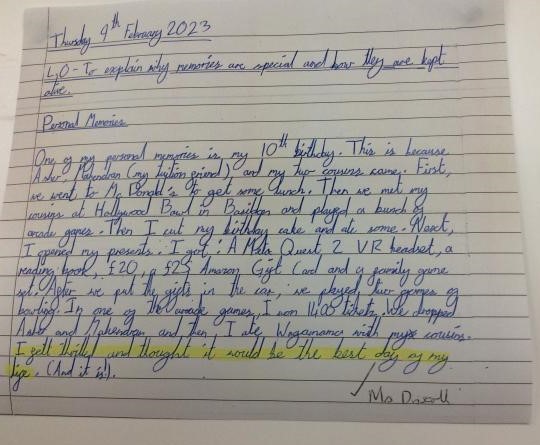 Thursday 9th February 2023
L.O - To explain why memories are special and how they are kept
alive.
Personal Memories
One of my personal memories is, my 10th birthday. This is because
Mahendran (my tuition friend) and my two cousins came. First,
we went to Mc Donald's to get some lunch. Then we met my
cousins at Hollywood Bowl in Basildon and played a bunch of
arcade games. Then I cut my birthday cake and ate some. Next,
I opened my presents. I got: A Meta Quest 2 VR headset, a
reading book, £20, a £25 Amazon Gift Card and a family game
set. After we put the gifts in the car, we played two games of
bowling. In one of the arcade games, I won 1400 tickets. We dropped
and Mahendran and then I ate Wagamama with my cousins.
I felt thrilled and thought it would be the best day of my
life. (And it is!).
✓ Ms Driscoll